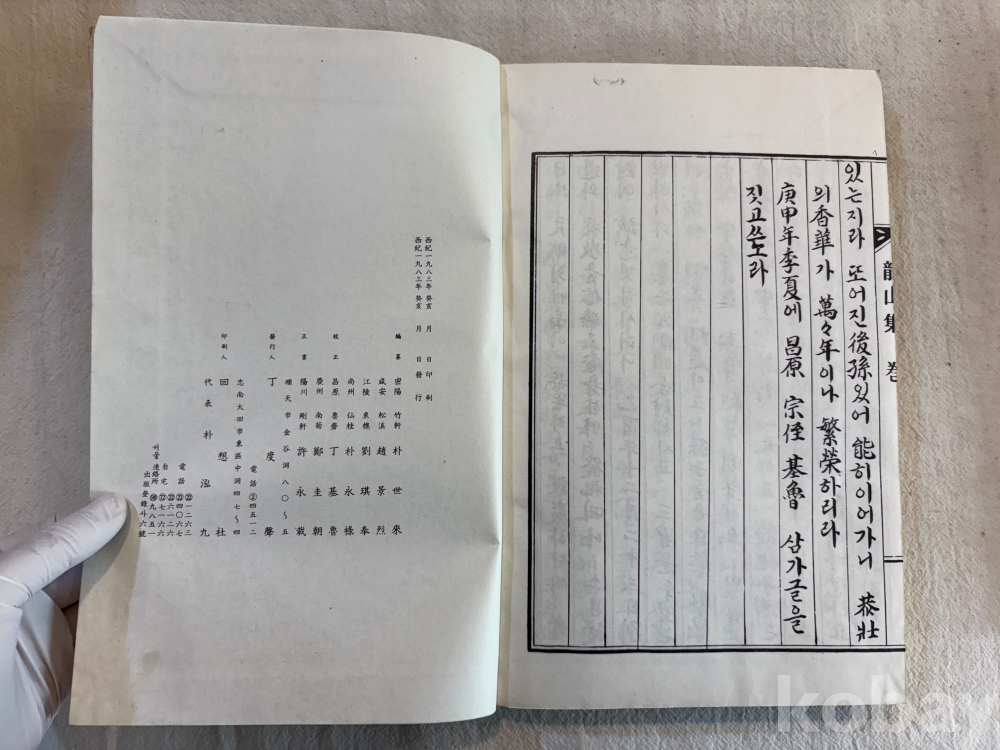 있는지라 또어진後孫있어 能히이어가니 恭壯
의香華가 萬々年이나 繁榮하리라
庚申年季夏에 昌原 宗侄 基魯 삼가글을
짓고쓰노라
龍山集 卷
西紀一九八三年 癸亥 月 日 印刷
西紀一九八三年 癸亥 月 日 發行
編纂 密陽 竹軒 朴世來
咸安 松溪 趙景烈
江陵 東樵 劉琪泰
校正 尙州 仙桂 朴永祿
昌原 魯齋 丁基魯
慶州 南菊 鄭圭朝
正書 陽川 剛軒 許永栽
發行人 丁度聲
順天市金谷洞八〇~五
電話②四五一二
忠南大田市東區中洞四七~四
印刷人 回想社
代表 朴泓九
電話 ㉒一二六三
㉒四〇六七
㉒六一二六
自宅 ㉒七一一六
서울連絡所
出版登錄사六號
kobay